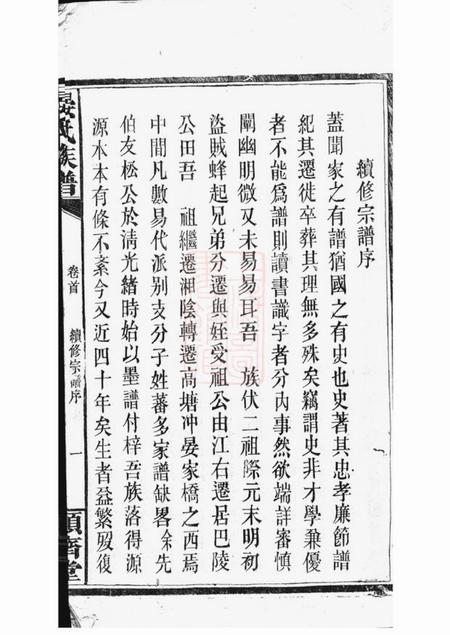 續修宗譜序
蓋聞家之有譜猶國之有史也史著其忠孝廉節譜
紀其遷徙卒葬其理無多殊矣竊謂史非才學兼優
者不能爲譜則讀書識字者分内事然欲端詳審慎
闡幽明微又未易易耳吾 族伏二祖際元末明初
盜賊蜂起兄弟分遷與姪受祖公由江右遷居巴陵
公田吾 祖繼遷湘陰轉遷高塘冲晏家橋之西焉
中間凡數易代派別支分子姓蕃多家譜缺畧余先
伯友松公於清光緒時始以墨譜付梓吾族落得源
源本本有條不紊今又近四十年矣生者益繁歿復
晏氏族譜
卷首
續修宗譜序
一
順齊堂